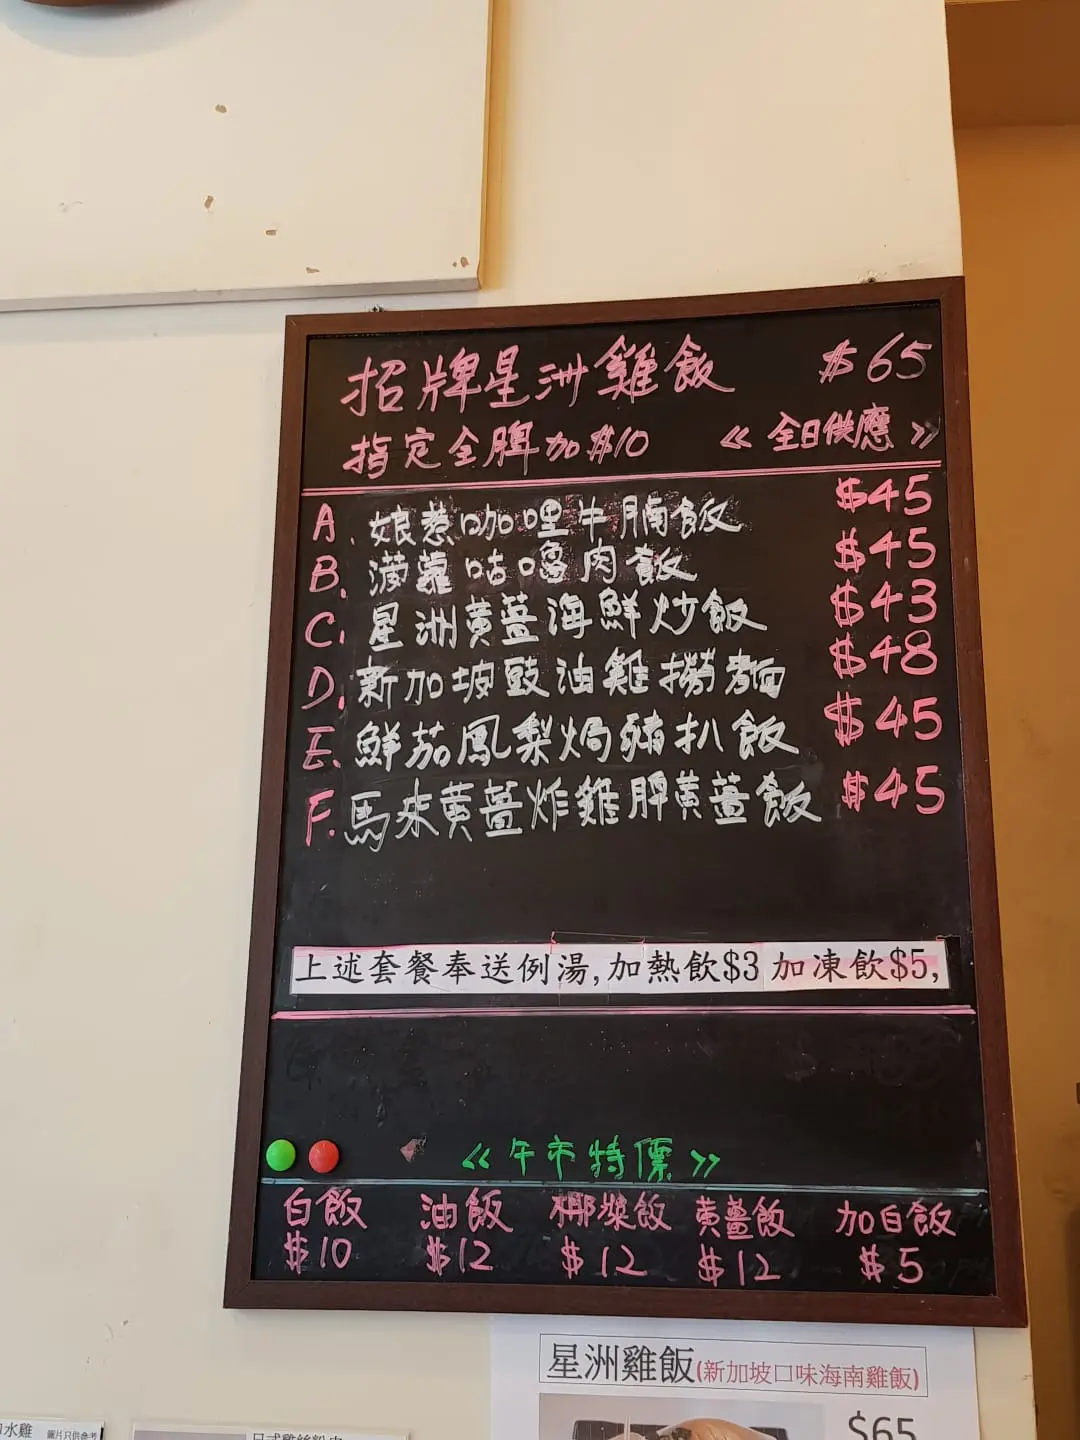 招牌星洲雞飯 $65
指定全髀加$10 《全日供應》
A. 娘惹咖哩牛腩飯 $45
B. 菠蘿咕嚕肉飯 $45
C. 星洲黄薑海鮮炒飯 $43
D. 新加坡豉油雞撈麵 $48
E. 鮮茄鳳梨焗豬扒飯 $45
F. 馬來黄薑炸雞髀黄薑飯 $45
上述套餐奉送例湯,加熱飲$3 加凍飲$5,
《午市特價》
白飯 油飯 椰漿飯 黄薑飯 加白飯
$10 $12 $12 $12 $5
星洲雞飯(新加坡口味海南雞飯)
$65
水雞 圖片只供參考